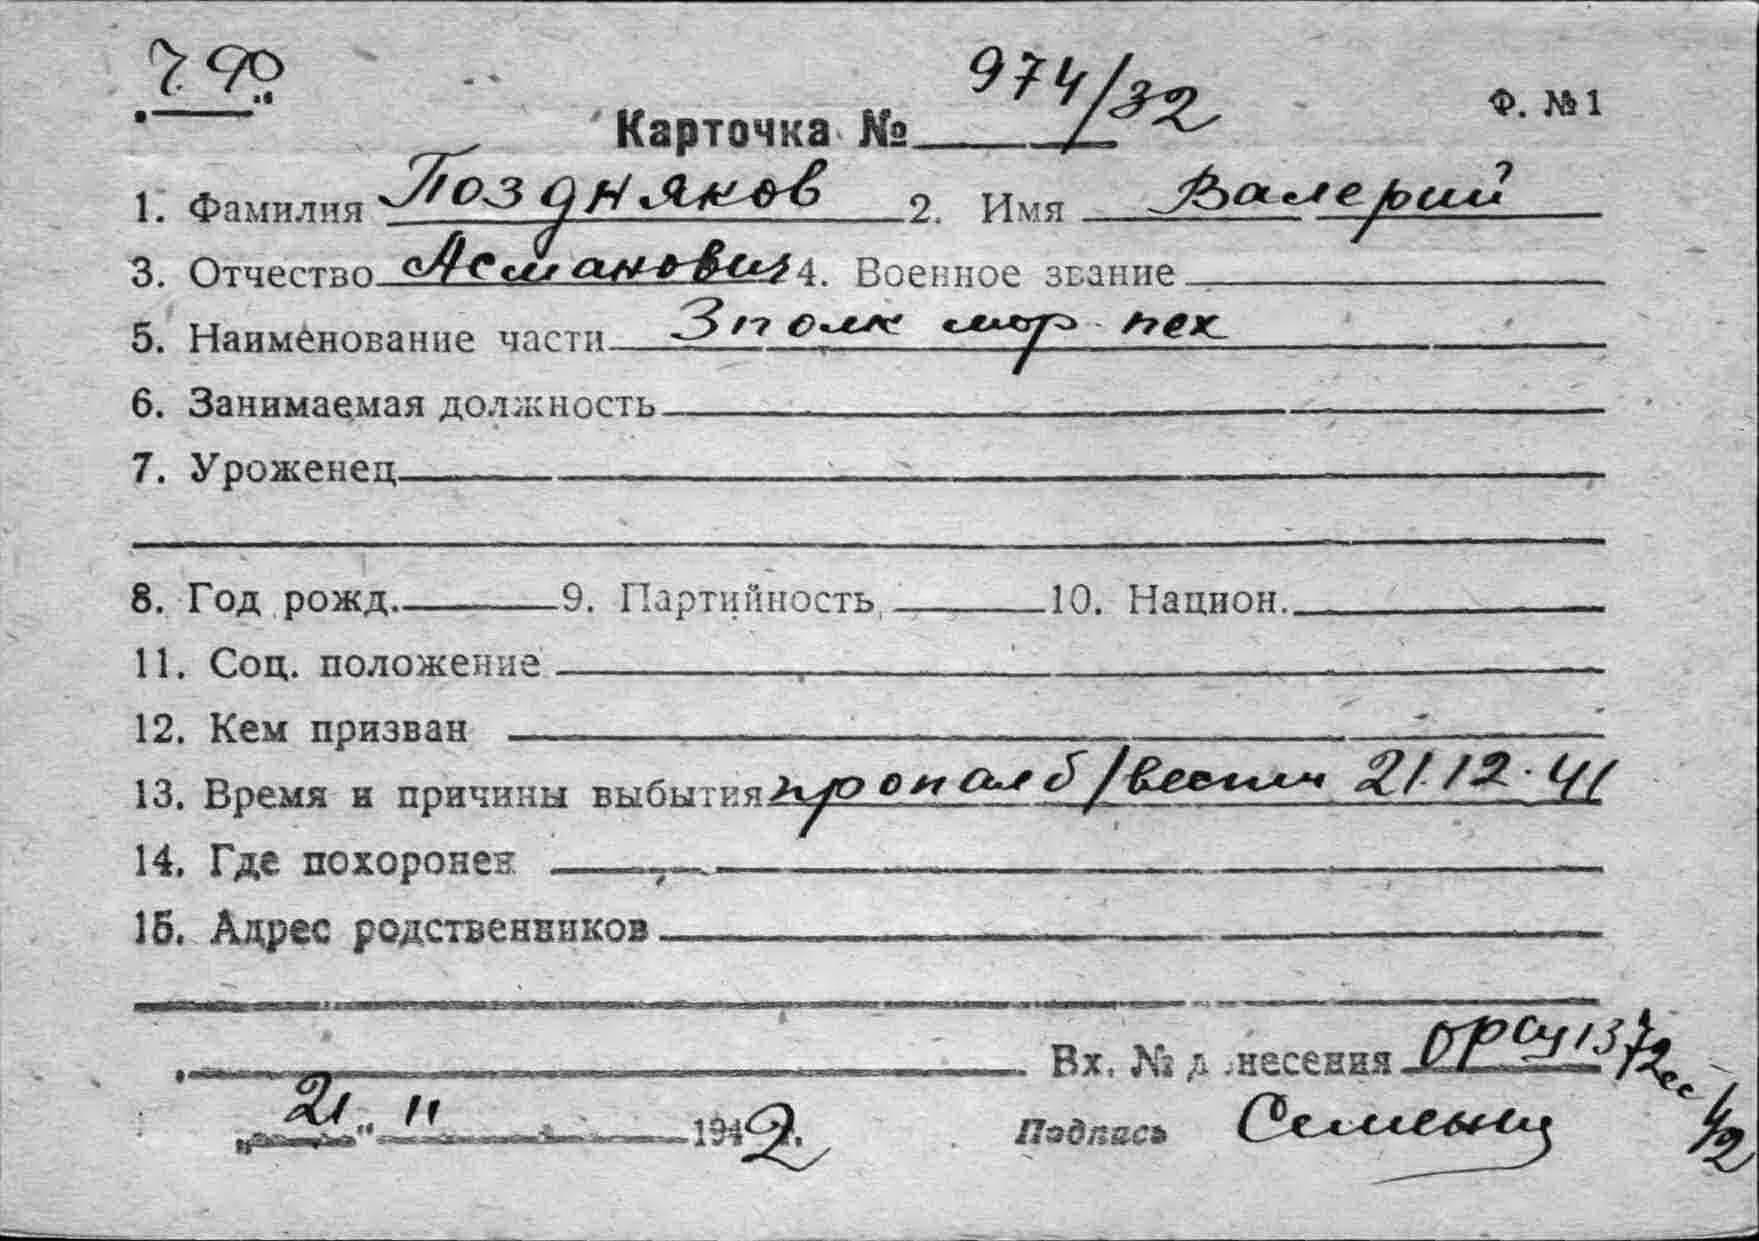 Ч. Ф
Карточка № 974/32 Ф. № 1
1. Фамилия Поздняков 2. Имя Валерий
3. Отчество Асманович 4. Военное звание
5. Наименование части 3 полк мор. пех
6. Занимаемая должность
7. Уроженец
8. Год рожд. 9. Партийность 10. Национ.
11. Соц. положение
12. Кем призван
13. Время и причины выбытия пропал б/вести 21.12.41
14. Где похоронен
15. Адрес родственников
Вх. № донесения 1372сс
„21" 11 1942 г. Подпись